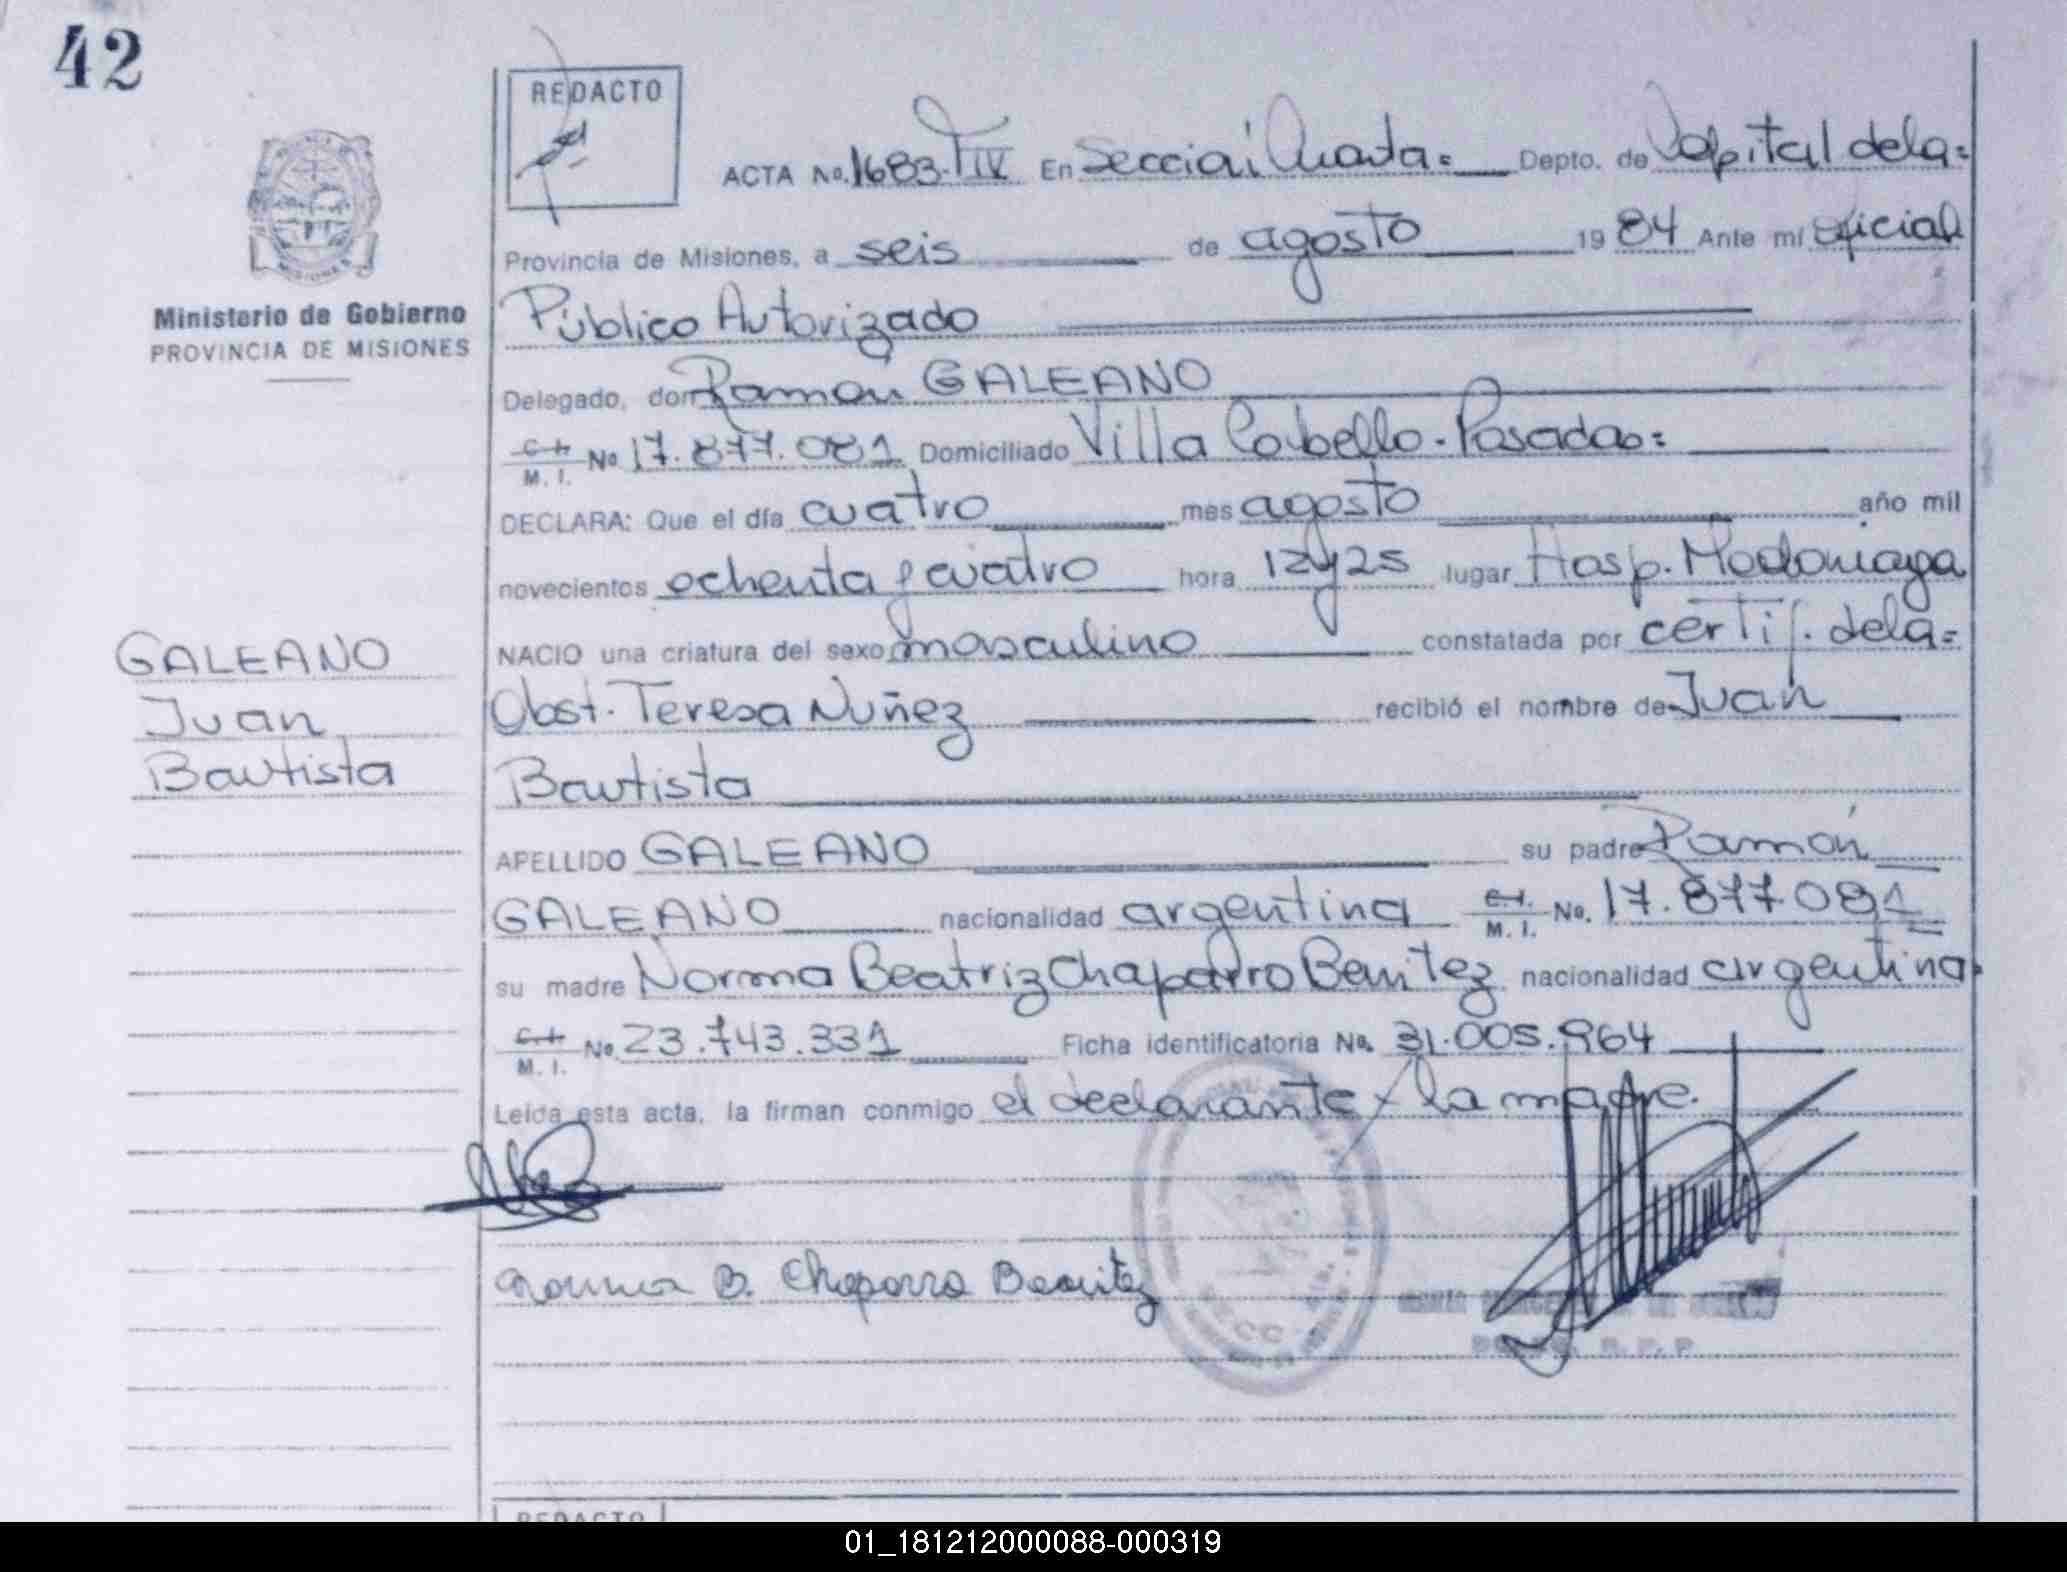 42
REDACTO
ACTA No. 1683. T IV En Sección Cuarta = Depto. de Capital de la =
Provincia de Misiones, a seis de agosto 19 84 Ante mí Oficial
Ministerio de Gobierno
PROVINCIA DE MISIONES
Público Autorizado
Delegado, don Ramón GALEANO
C. I. M. I. No 17.877.081 Domiciliado Villa Cabello - Posadas =
DECLARA: Que el día cuatro mes agosto año mil
novecientos ochenta y cuatro hora 12y25 lugar Hosp. Madariaga
NACIO una criatura del sexo masculino constatada por certif. de la =
Obst. Teresa Nuñez recibió el nombre de Juan
Bautista
GALEANO
Juan
Bautista
APELLIDO GALEANO su padre Ramón
GALEANO nacionalidad argentina C. I. M. I. No. 17.877.081
su madre Norma Beatriz Chaparro Benitez nacionalidad argentina
C. I. M. I. No 23.743.331 Ficha identificatoria No. 31.005.964
Leída esta acta, la firman conmigo el declarante y la madre.
Norma B. Chaparro Benitez
R. P. P.
REDACTO
01_181212000088-000319